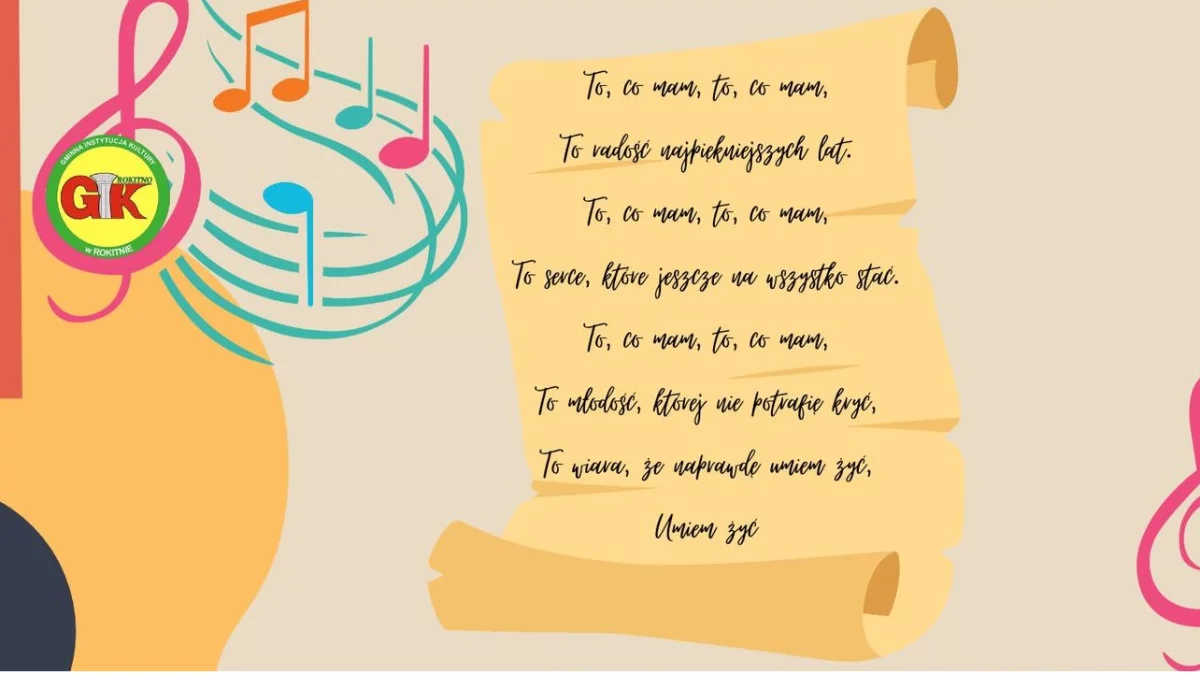 GMINNA INSTYTUCJA KULTURY
ROKITNO
GIK
w ROKITNIE
To, co mam, to, co mam,
To radość najpiękniejszych lat.
To, co mam, to, co mam,
To serce, które jeszcze na wszystko stać.
To, co mam, to, co mam,
To młodość, której nie potrafię kryć,
To wiara, że naprawdę umiem żyć,
Umiem żyć